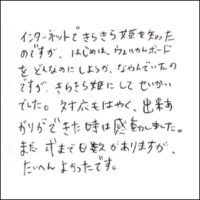 インターネットできらきら姫を知った
のですが、はじめは、ウェルカムボード
をどんなのにしようか、なやんでいたの
ですが、きらきら姫にして せいかい
でした。対応もはやく、出来あ
がりができた時は感動しました。
まだ 式まで日数がありますが、
たいへん よかったです。